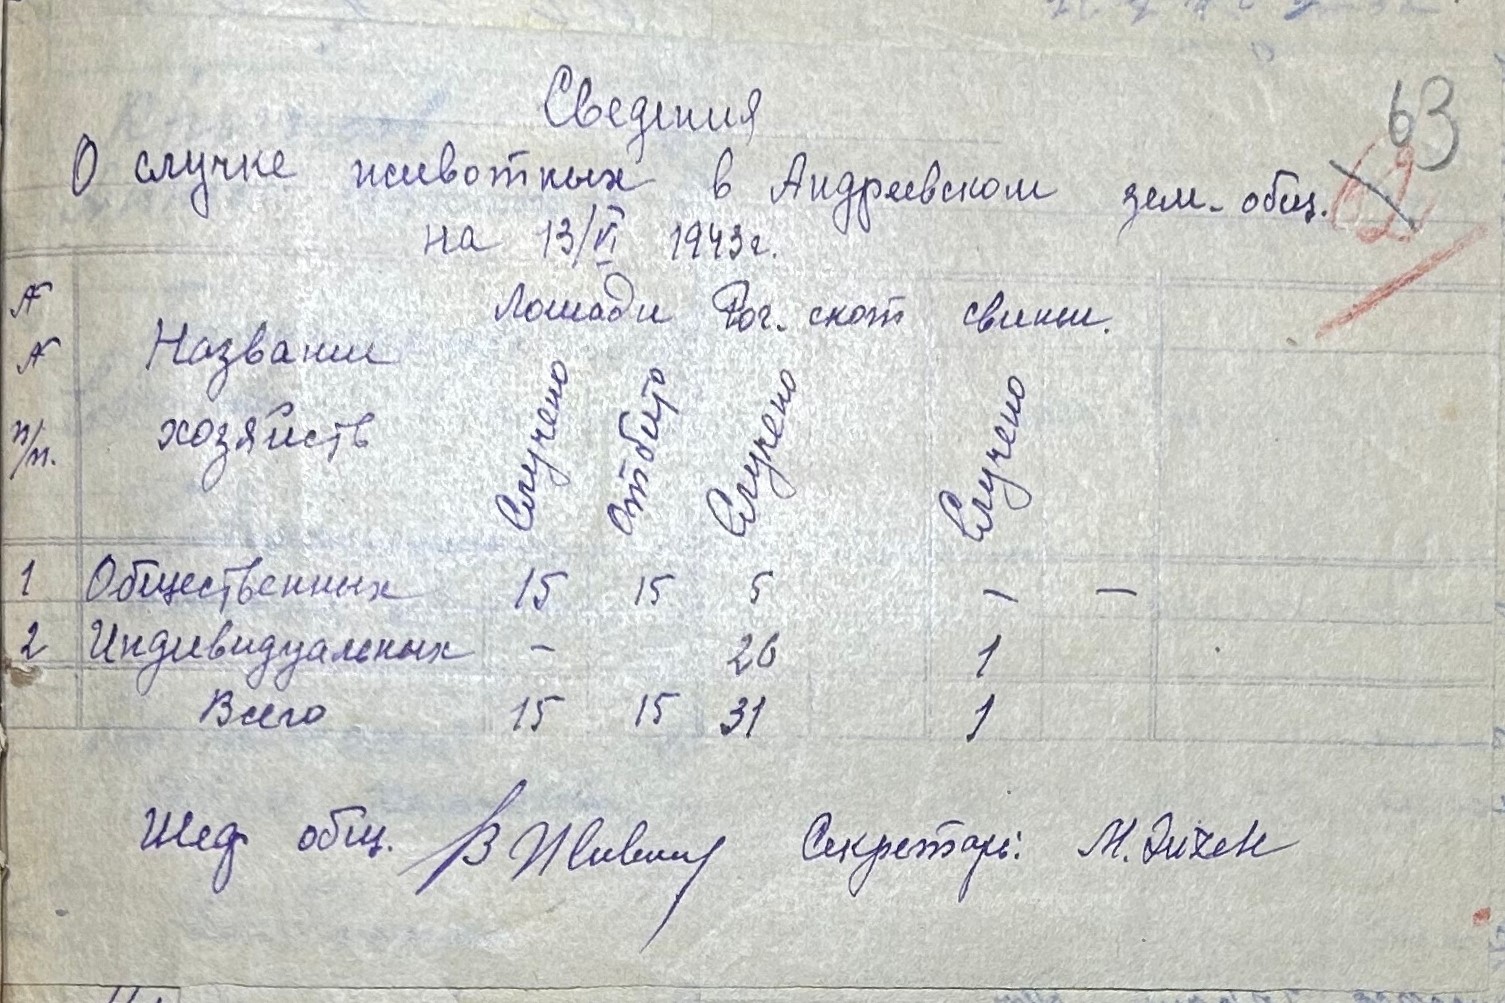 63
Сведения
О случке животных в Андреевском зем. общ.
62
на 13/VI 1943г.
№ Лошади Рог. скот свиньи.
№ Название
п/п. хозяйств Случено Отбито Случено Случено
1 Общественных 15 15 5 – –
2 Индивидуальных – 26 1
Всего 15 15 31 1
Шеф общ. Секретарь: